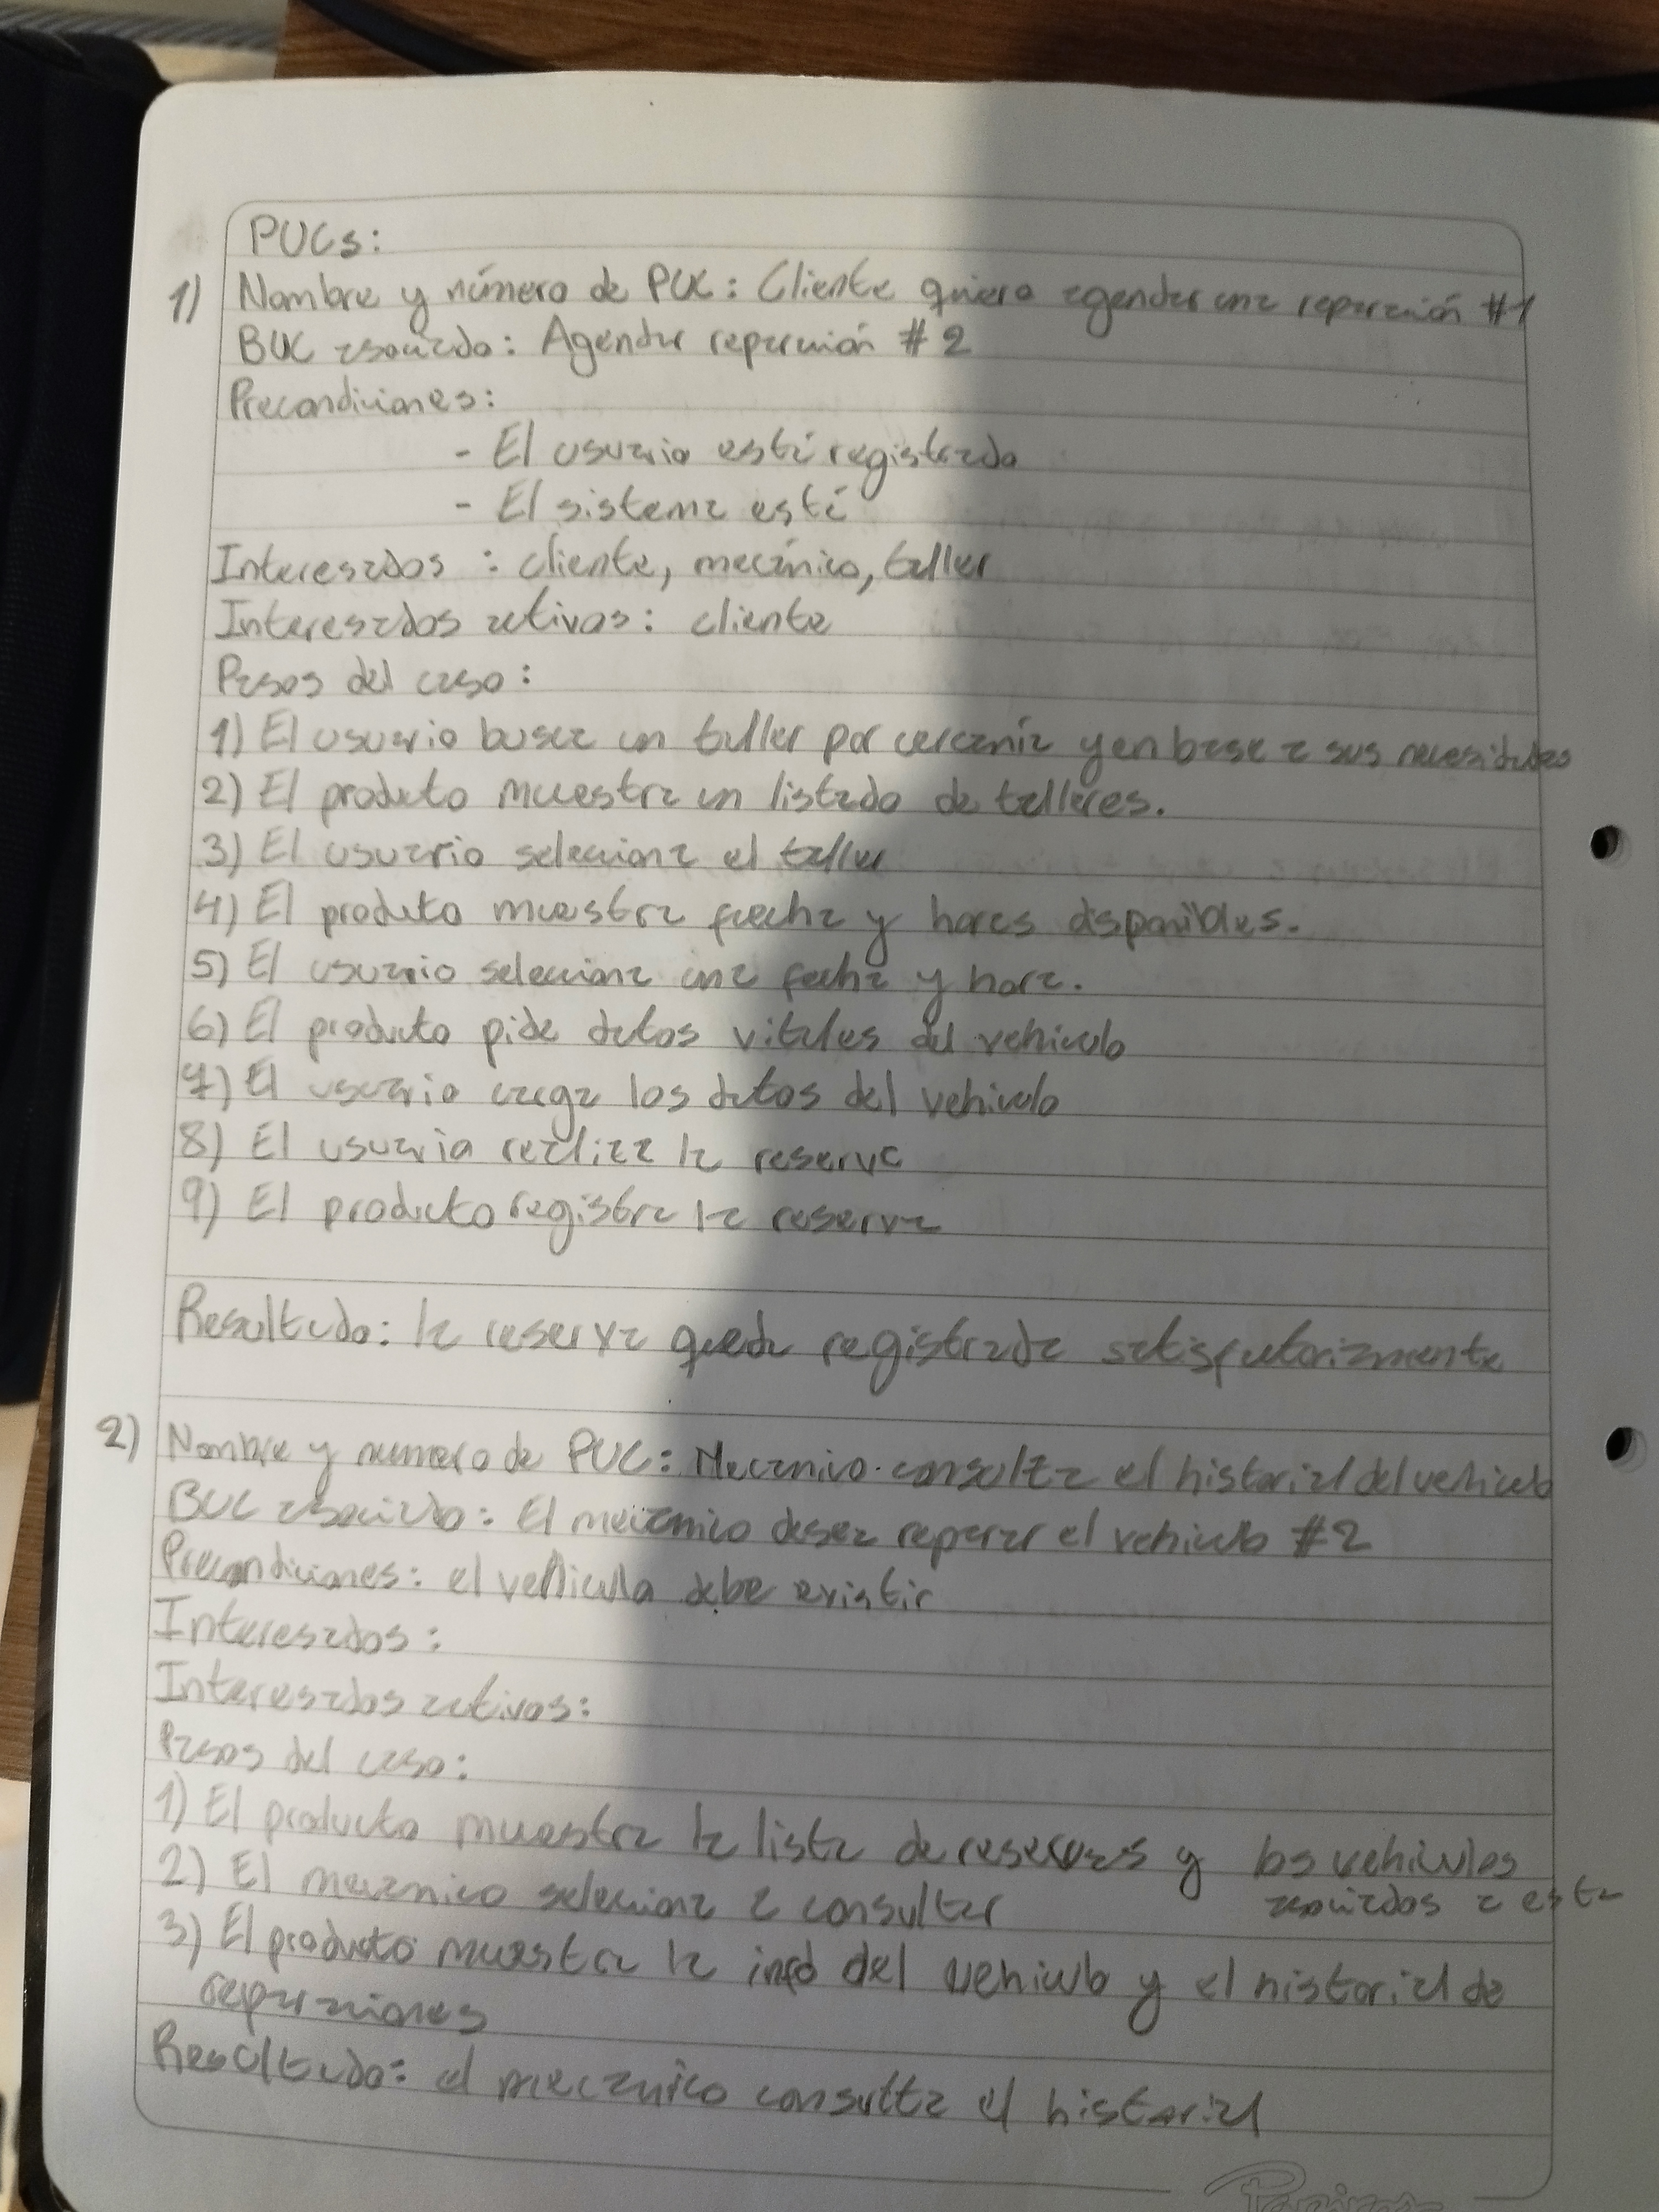 PUCs:
1) Nombre y número de PUC: Cliente quiere agendar una reparación #1
BUC asociado: Agendar reparación #2
Precondiciones:
- El usuario está registrado
- El sistema está
Interesados : cliente, mecánico, taller
Interesados activos: cliente
Pasos del caso:
1) El usuario busca un taller por cercanía y en base a sus necesidades
2) El producto muestra un listado de talleres.
3) El usuario selecciona el taller
4) El producto muestra fecha y horas disponibles.
5) El usuario selecciona una fecha y hora.
6) El producto pide datos vitales del vehiculo
7) El usuario carga los datos del vehiculo
8) El usuario realiza la reserva
9) El producto registra la reserva
Resultado: la reserva queda registrada satisfactoriamente
2) Nombre y numero de PUC: Mecanico consulta el historial del vehiculo
BUC asociado: El mecanico desea reparar el vehiculo #2
Precondiciones: el vehicula debe existir
Interesados:
Interesados activos:
Pasos del caso:
1) El producto muestra la lista de reservas y los vehiculos
asociados a esta
2) El mecanico selecciona a consultar
3) El producto muestra la info del vehiculo y el historial de
reparaciones
Resultado: el mecanico consulta el historial